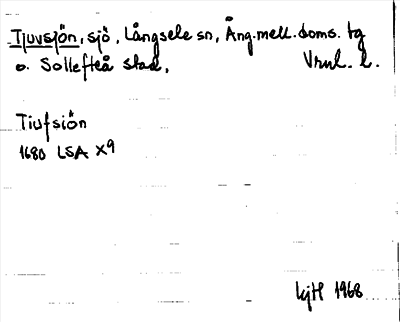 Tjuvsjön, sjö, Långsele sn, Ång.mell.doms. tg
o. Sollefteå stad, Vrnl. l.
Tiufsiön
1680 LSA X9
1968